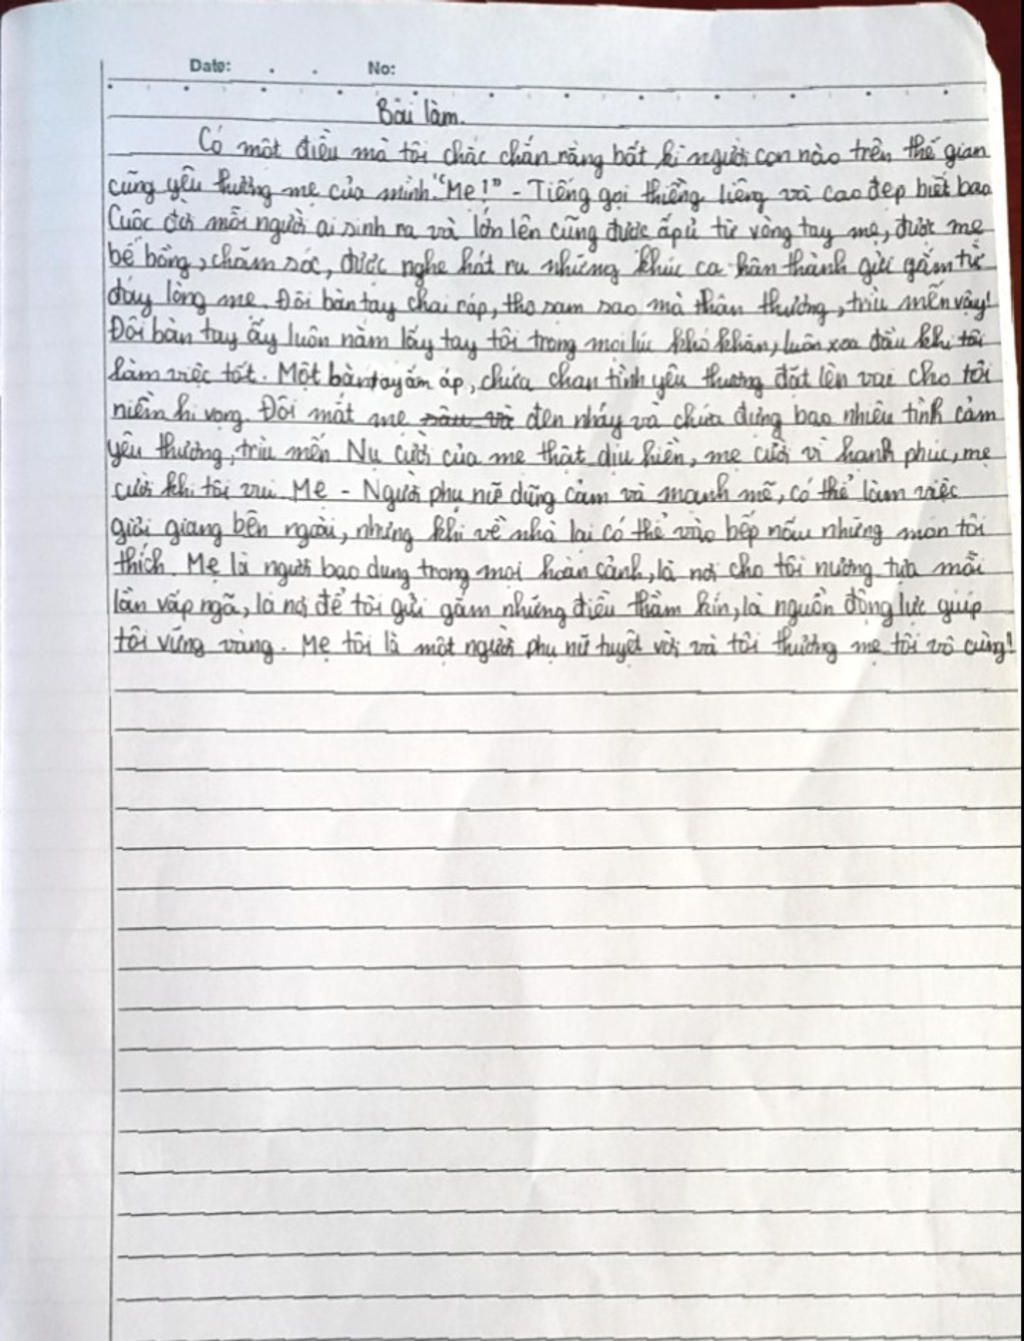 Date: . . No:
Bài làm.
Có một điều mà tôi chắc chắn rằng bất kì người con nào trên thế gian
cũng yêu thương mẹ của mình. "Mẹ!" - Tiếng gọi thiêng liêng và cao đẹp biết bao
Cuộc đời mỗi người ai sinh ra và lớn lên cũng được ấp ủ từ vòng tay mẹ, được mẹ
bế bồng, chăm sóc, được nghe hát ru những khúc ca chân thành gửi gắm từ
đáy lòng mẹ. Đôi bàn tay chai ráp, thô sạm sao mà thân thương, trìu mến vậy!
Đôi bàn tay ấy luôn nắm lấy tay tôi trong mọi lúc khó khăn, luôn xoa đầu khi tôi
làm việc tốt. Một bàn tay ấm áp, chứa chan tình yêu thương đặt lên vai cho tôi
niềm hi vọng. Đôi mắt mẹ đen nháy và chứa đựng bao nhiêu tình cảm
yêu thương, trìu mến. Nụ cười của mẹ thật dịu hiền, mẹ cười vì hạnh phúc, mẹ
cười khi tôi vui. Mẹ - Người phụ nữ dũng cảm và mạnh mẽ, có thể làm việc
giỏi giang bên ngoài, nhưng khi về nhà lại có thể vào bếp nấu những món tôi
thích. Mẹ là người bao dung trong mọi hoàn cảnh, là nơi cho tôi nương tựa mỗi
lần vấp ngã, là nơi để tôi gửi gắm những điều thầm kín, là nguồn động lực giúp
tôi vững vàng. Mẹ tôi là một người phụ nữ tuyệt vời và tôi thương mẹ tôi vô cùng!